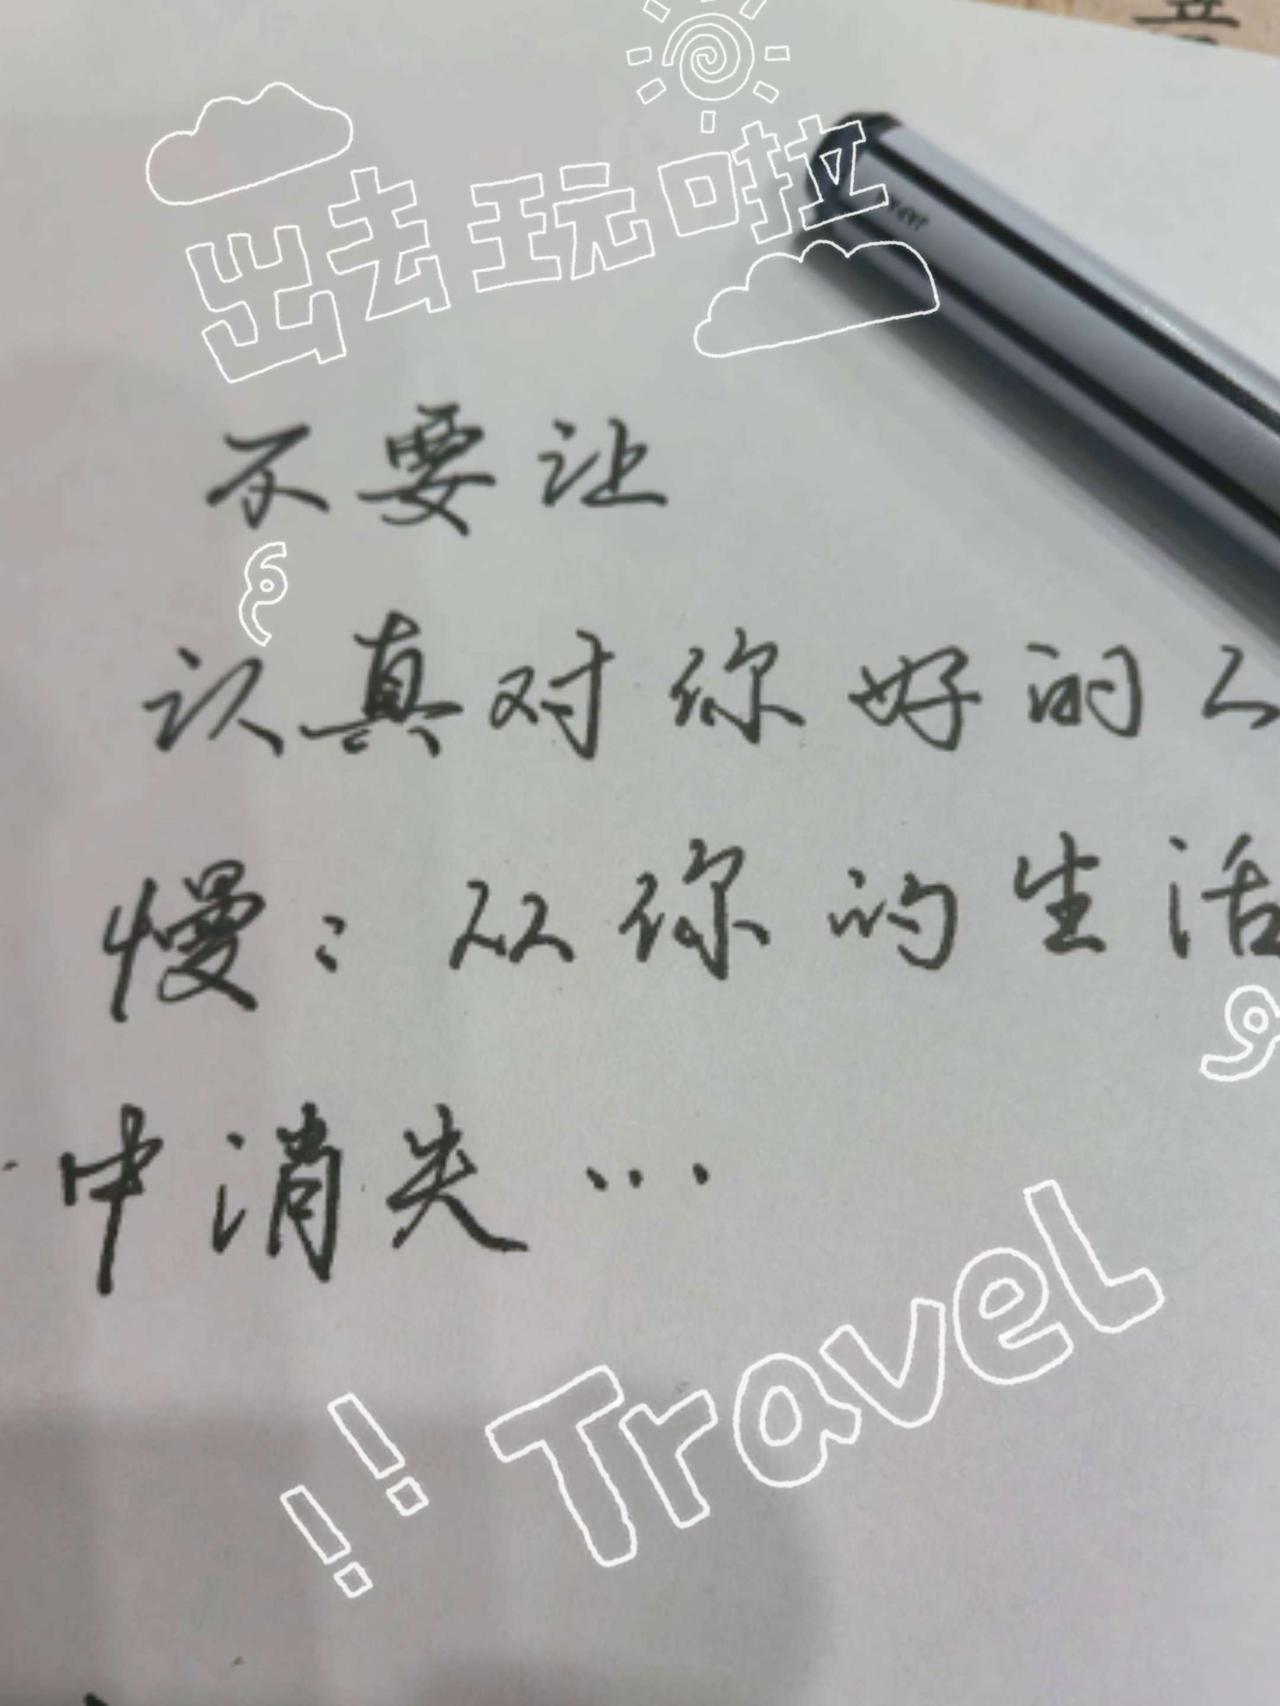 出去玩啦
不要让
认真对你好的人
慢慢从你的生活
中消失…
Travel
!!